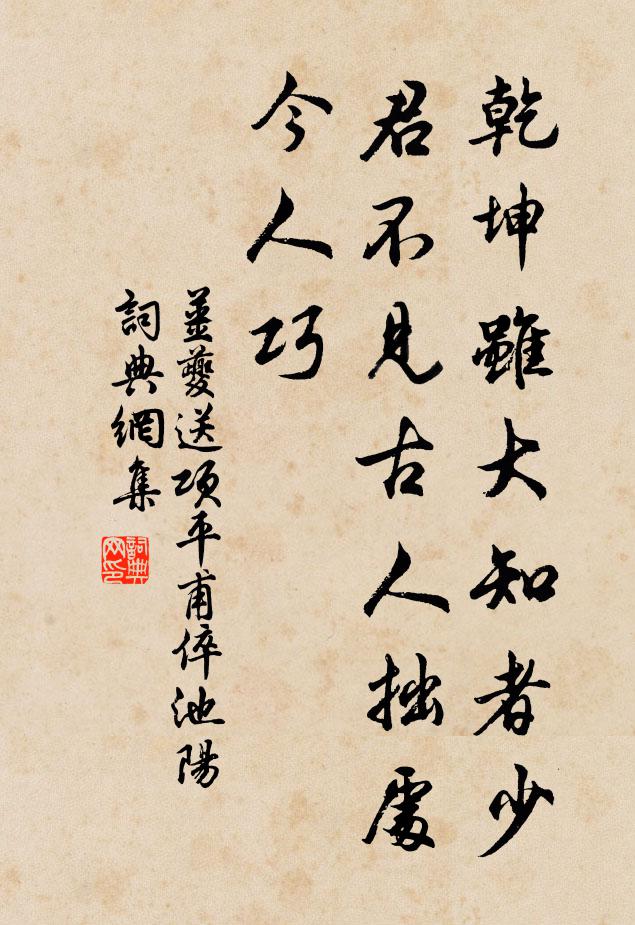 乾坤雖大知者少
君不見古人拙處
今人巧
姜夔送項平甫倅池陽
詞典網集
詞典網印